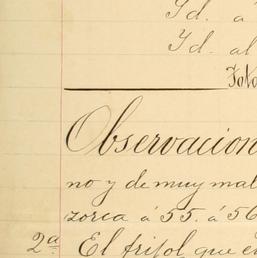 Id. á
Id. al
Tota
Observacion
no y de muy mal
zorca á 55. á 56
2ª El frijol que en